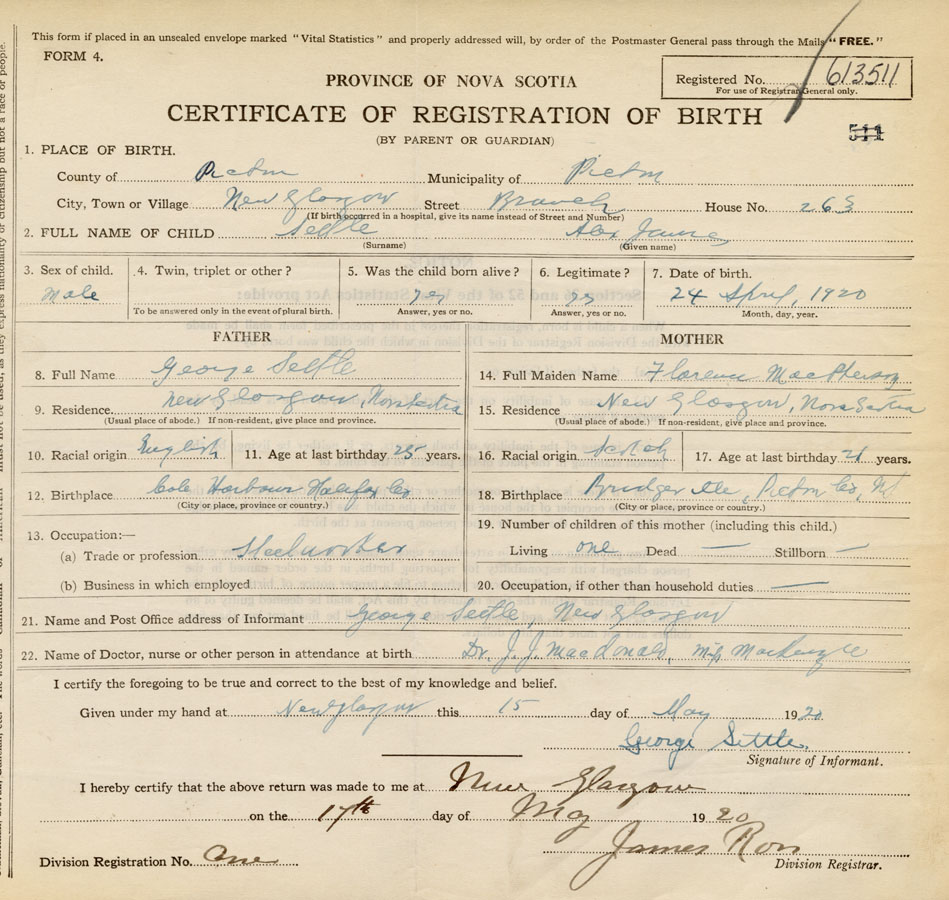 This form if placed in an unsealed envelope marked "Vital Statistics" and properly addressed will, by order of the Postmaster General pass through the Mails "FREE."
FORM 4.
PROVINCE OF NOVA SCOTIA
Registered No. 613511
For use of Registrar General only.
CERTIFICATE OF REGISTRATION OF BIRTH
(BY PARENT OR GUARDIAN)
511
1. PLACE OF BIRTH.
County of Pictou Municipality of Pictou
City, Town or Village New Glasgow Street Branch House No. 263
(If birth occurred in a hospital, give its name instead of Street and Number)
2. FULL NAME OF CHILD Settle Alex James
(Surname) (Given name)
3. Sex of child. 4. Twin, triplet or other? 5. Was the child born alive? 6. Legitimate? 7. Date of birth.
Male yes yes 24 April, 1920
To be answered only in the event of plural birth. Answer, yes or no. Answer, yes or no. Month, day, year.
FATHER MOTHER
8. Full Name George Settle 14. Full Maiden Name Florence MacPherson
9. Residence New Glasgow, Nova Scotia 15. Residence New Glasgow, Nova Scotia
(Usual place of abode.) If non-resident, give place and province. (Usual place of abode.) If non-resident, give place and province.
10. Racial origin English 11. Age at last birthday 25 years. 16. Racial origin Scotch 17. Age at last birthday 21 years.
12. Birthplace Cole Harbour Halifax Co 18. Birthplace Bridgeville, Pictou Co, NS
(City or place, province or country.) (City or place, province or country.)
13. Occupation:— 19. Number of children of this mother (including this child.)
(a) Trade or profession Steelworker Living one Dead — Stillborn —
(b) Business in which employed 20. Occupation, if other than household duties —
21. Name and Post Office address of Informant George Settle, New Glasgow
22. Name of Doctor, nurse or other person in attendance at birth Dr. J. J. MacDonald, Miss MacKenzie
I certify the foregoing to be true and correct to the best of my knowledge and belief.
Given under my hand at New Glasgow this 15 day of May 1920
George Settle.
Signature of Informant.
I hereby certify that the above return was made to me at New Glasgow
on the 17th day of May 1920
James Ross
Division Registration No. One Division Registrar.